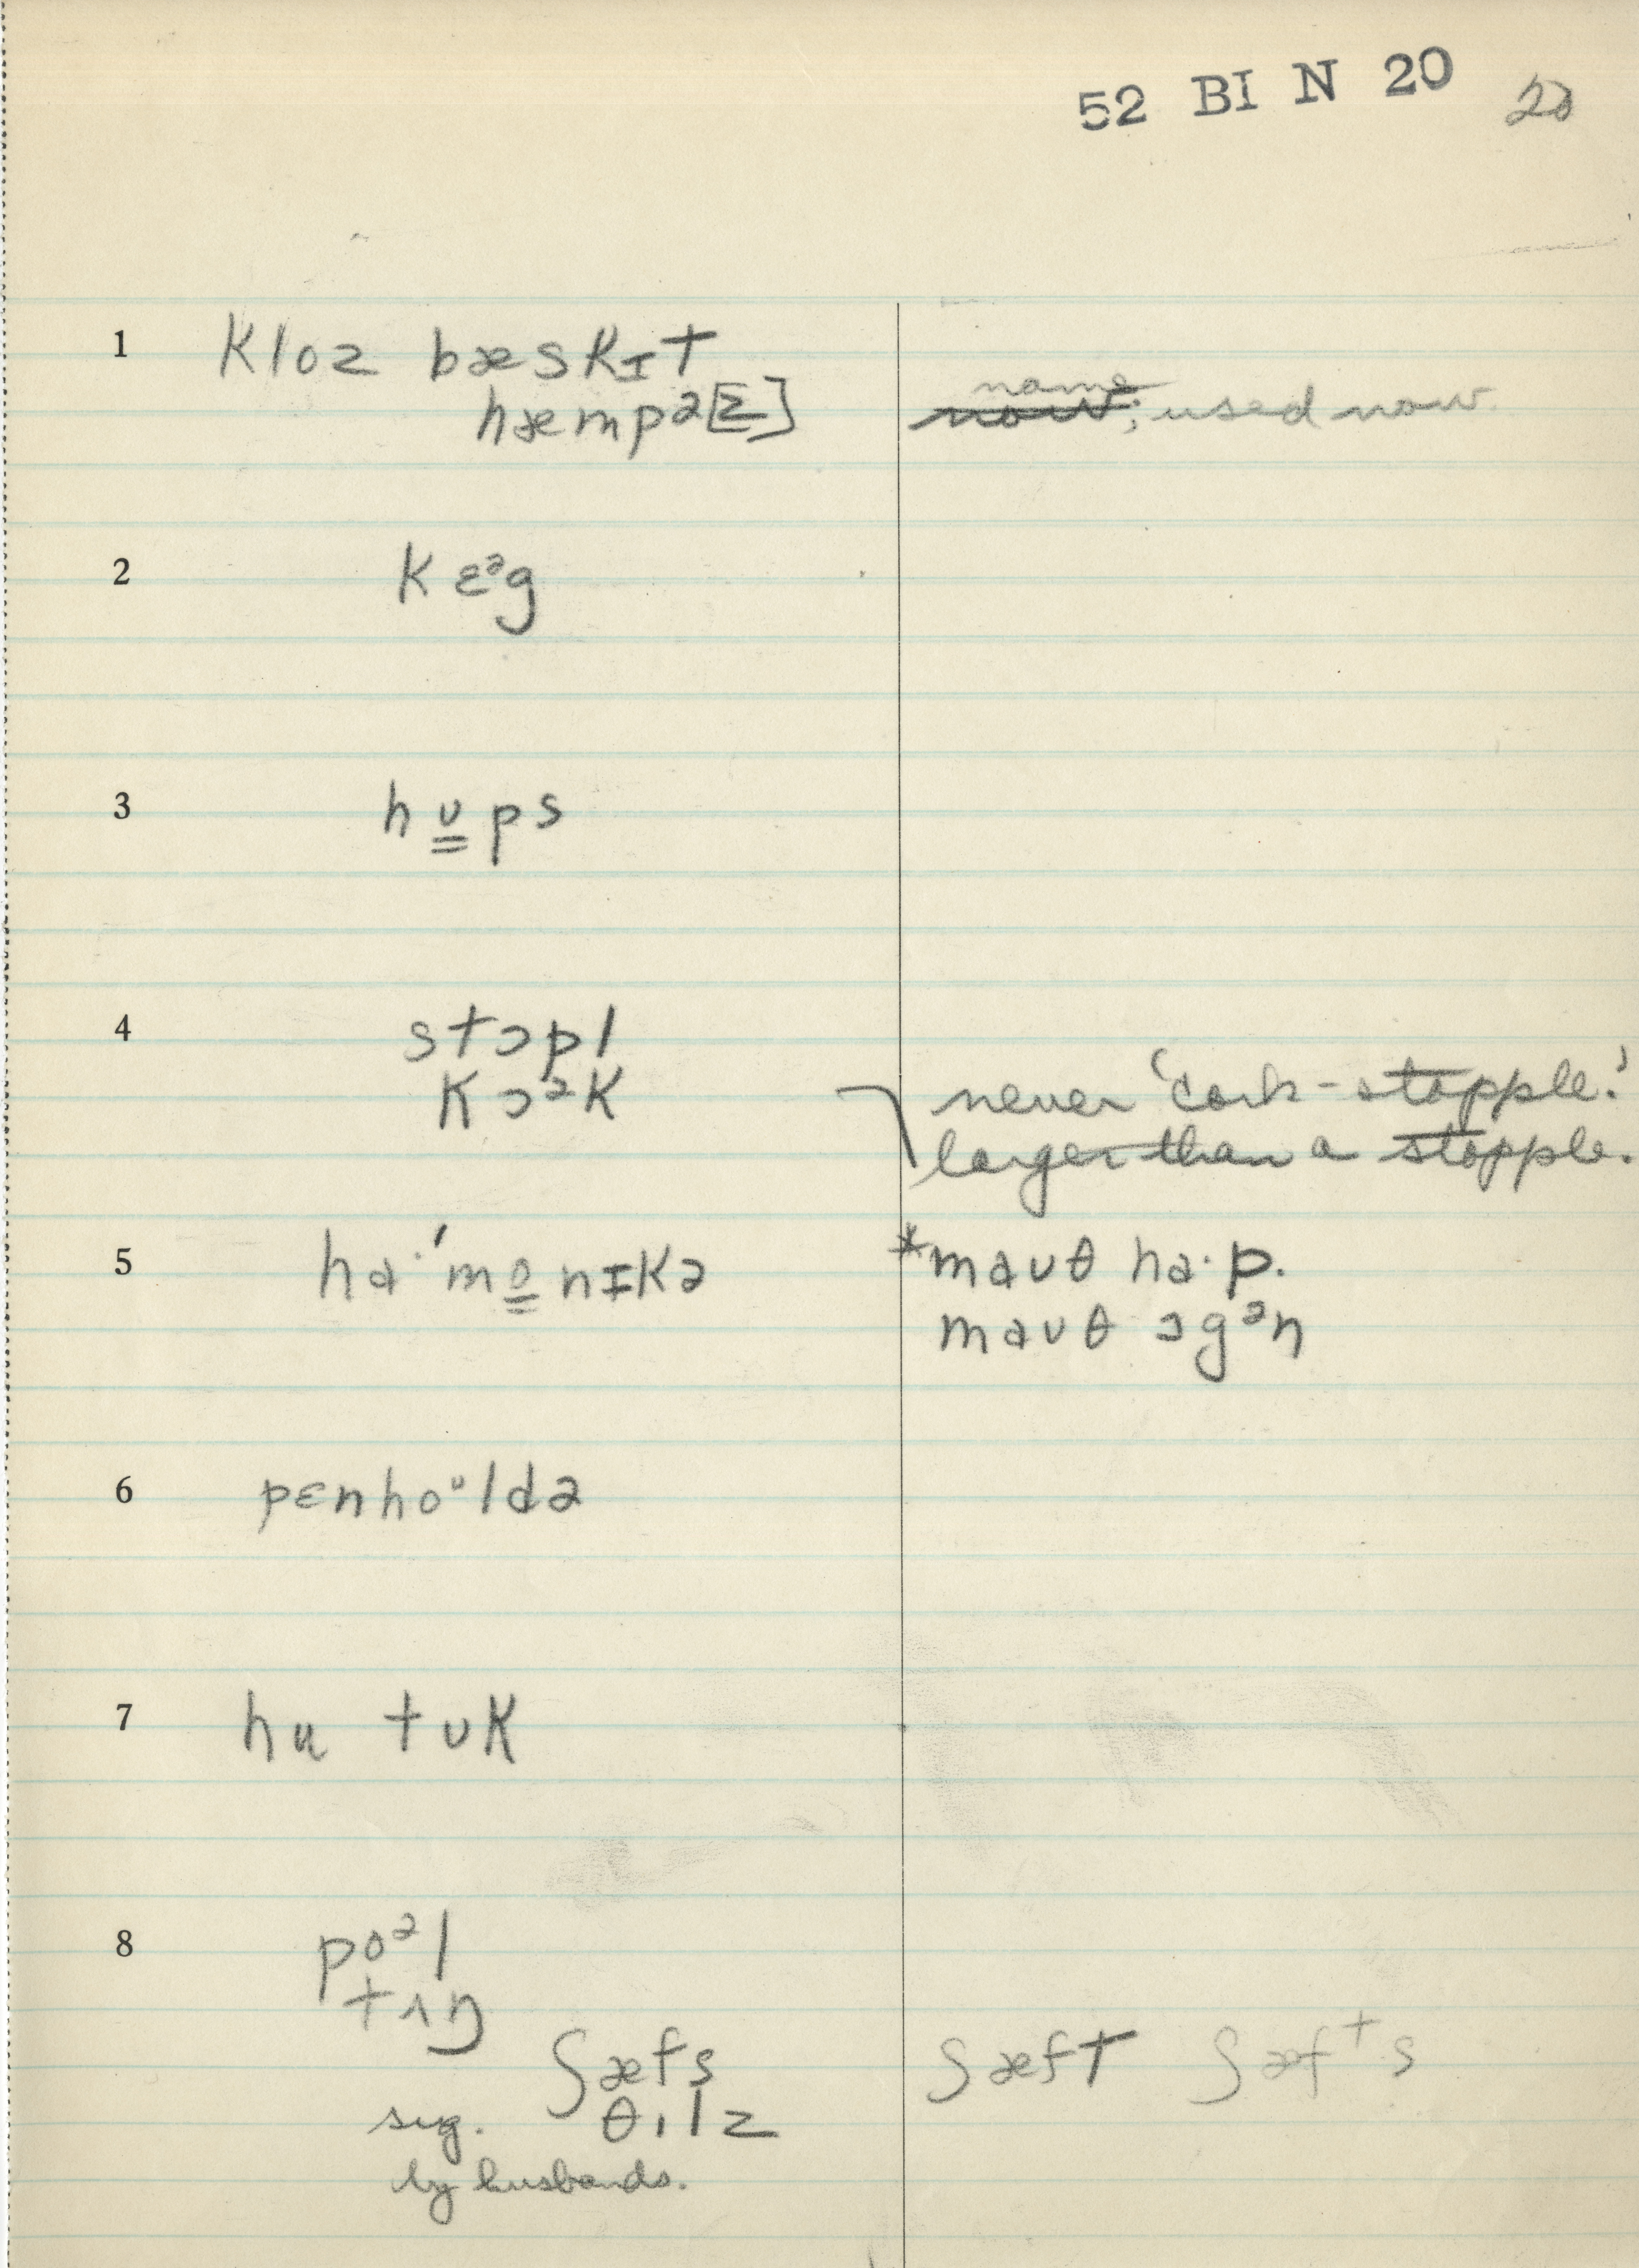 52 BI N 20 20
1 kloz bæskɪt
hæmpə[z] name; used now.
2 kɛᵊg
3 hʊ̳ps
4 stɔpl
kɔᵊk never 'cork-stopple.'
larger than a stopple.
5 ha·'mo̳nɪkə *maʊθ ha·p.
maʊθ ɔgᵊn
6 pɛnhoᶷldə
7 hu tʊk
8 poᵊl
tʌŋ
ʃæfs ʃæft ʃæfᵗs
sug. θɪlz
by husbands.